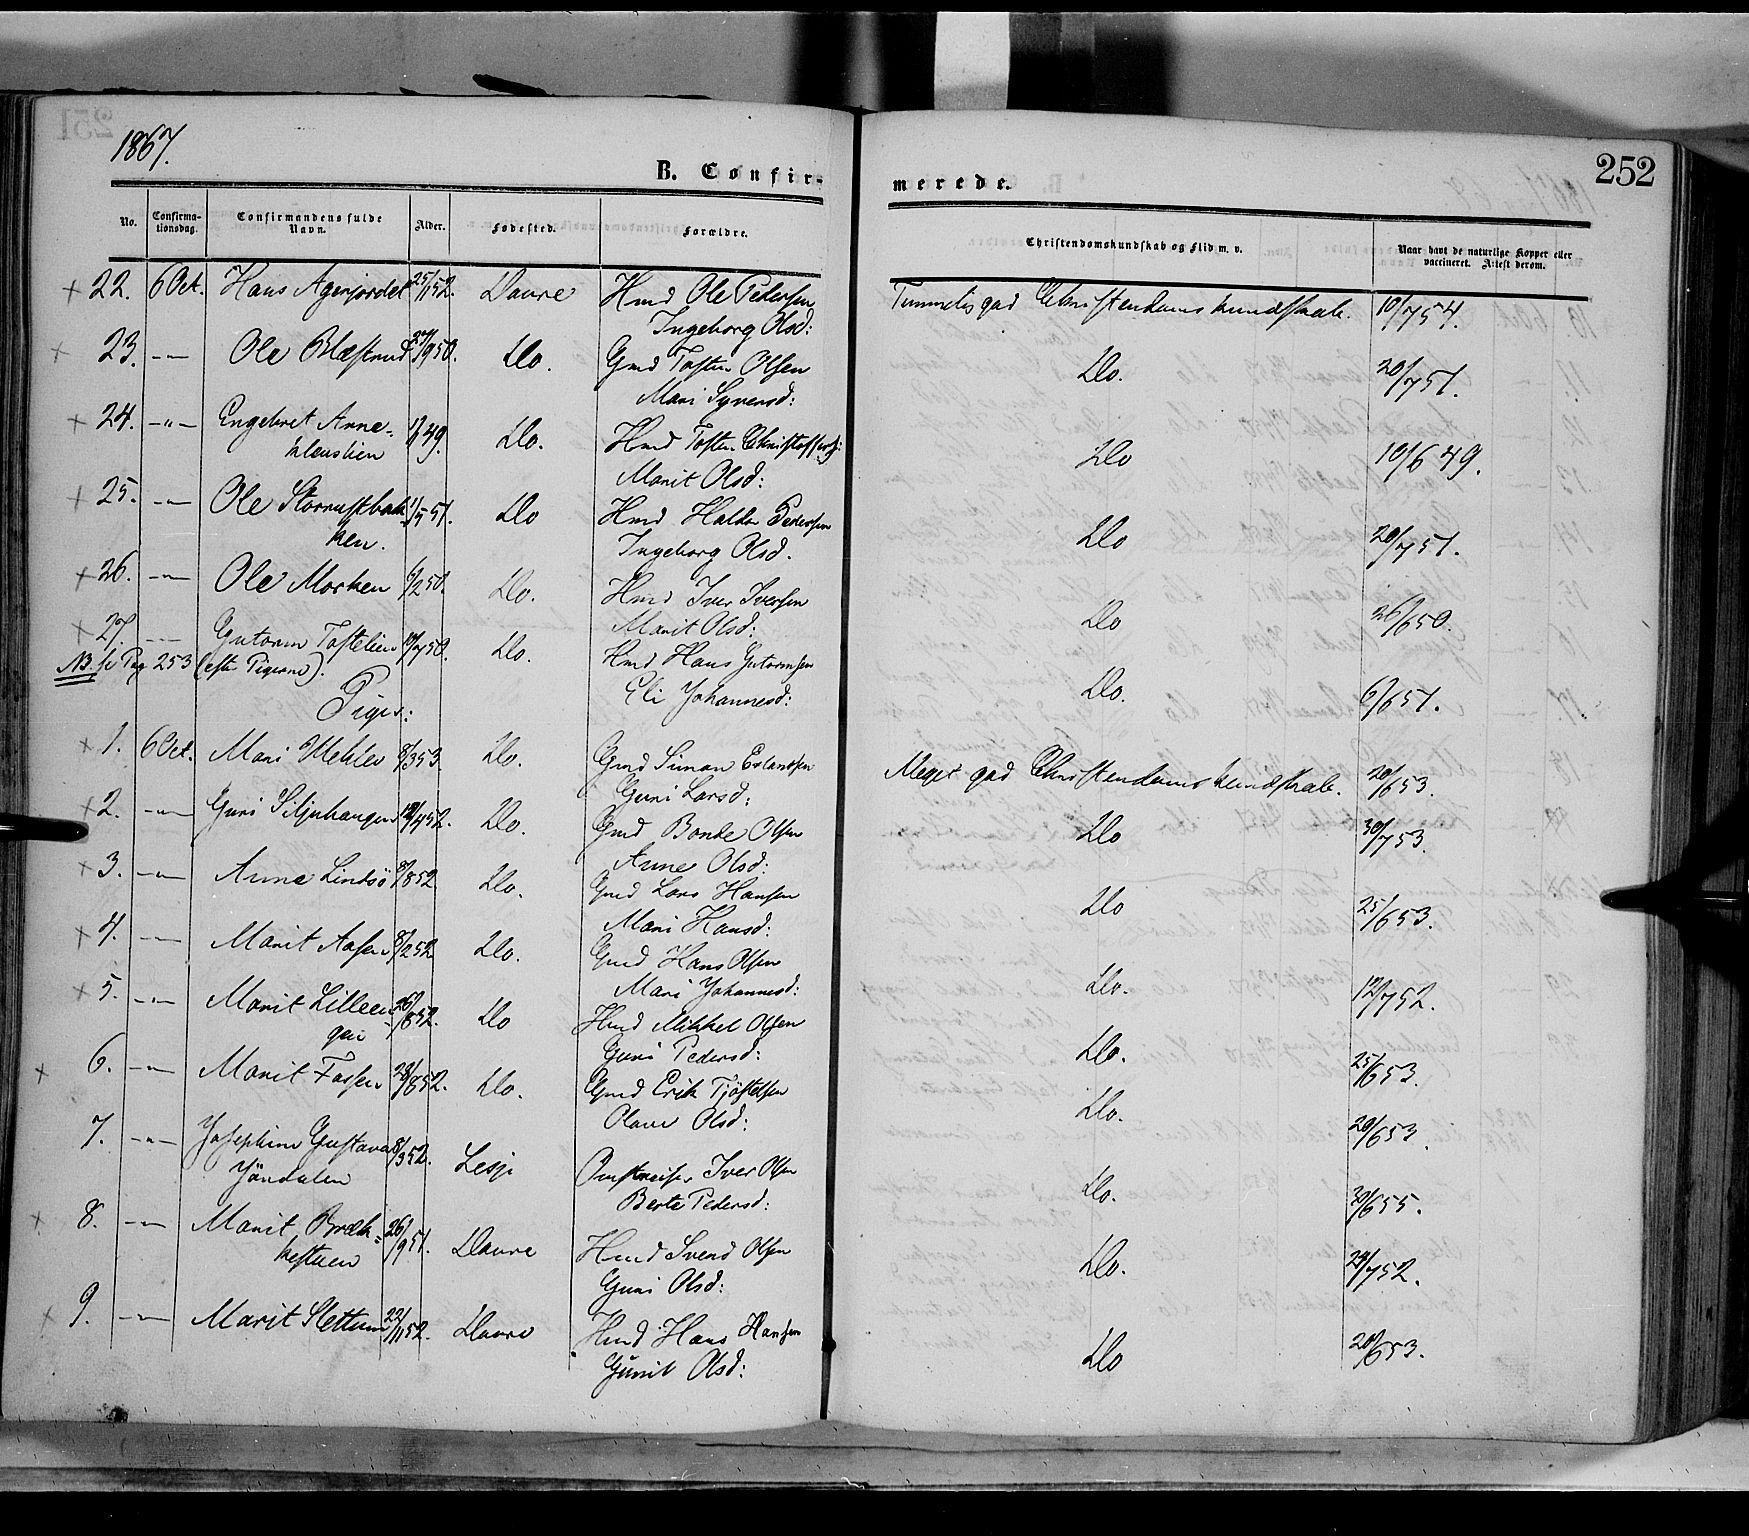 1867.
252
B. Confir-
merede.
No.
Confirma-
tionsdag.
Confirmandens fulde
Navn.
Alder.
Fødested.
Forældre.
Christendomskundskab og Flid m. v.
Naar havt de naturlige Kopper eller
vaccineret. Attest derom.
22. 6 Oct. Hans Agerjordet 25/1 52. Dovre Hmd Ole Pedersen Temmelig god Christendomskundskab. 10/7 54.
Ingeborg Olsd:
23. -"- Ole Blæstrud 27/9 50. Do. Gmd Tosten Olsen Do. 20/7 51.
Mari Syversd:
24. -"- Engebret Arne= 1/1 49. Do. Hmd Tosten Christoffers: Do 10/6 49.
klevslien Marit Olsd:
25. -"- Ole Storrustbak 1/5 51. Do Hmd Haldor Pedersen Do 20/7 51.
ken. Ingeborg Olsd.
26. -"- Ole Morken 6/2 50. Do. Hmd Iver Iversen Do 26/6 50.
Marit Olsd:
27. -"- Gutorm Tostelien 19/7 50. Do. Hmd Hans Gutormsen Do. 6/6 51.
NB. se Pag 253 (efter Pigerne). Eli Johannesd:
Piger:
1. 6 Oct. Mari Mehlev 8/3 53. Do. Gmd Simon Erlandsen Meget god Christendomskundskab. 20/6 53.
Guri Larsd:
2. -"- Guri Siljuhaugen 12/4 52. Do. Gmd Bonde Olsen Do 30/7 53.
Anne Olsd:
3. -"- Anne Lindsö 9/8 52 Do. Gmd Lars Hansen Do 25/6 53.
Mari Hansd:
4. -"- Marit Aasen 8/2 52 Do. Gmd Hans Olsen Do. 12/7 52.
Mari Johannesd:
5. -"- Marit Lilleen= 26/8 52. Do Hmd Mikkel Olsen Do. 25/6 53.
gen Guri Pedersd:
6. -"- Marit Fossen 28/8 52. Do. Gmd Erik Tjöstelsen Do. 20/6 53.
Olave Olsd:
7. -"- Josephine Gustava 8/3 52. Lesje Iver Olsen Do. 30/6 55.
Jöndalen Berte Pedersd:
8. -"- Marit Bræk= 26/9 51. Dovre Hmd Svend Olsen Do. 24/7 52.
kestuen Guri Olsd:
9. -"- Marit Slettum 22/11 52. Dovre Hmd Hans Hansen Do 20/6 53.
Gunil Olsd: